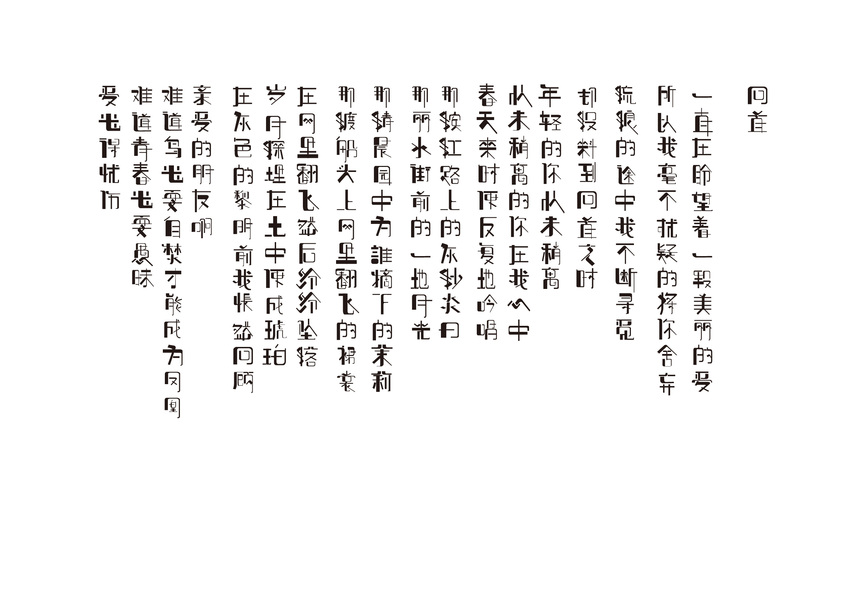 回首
一直在盼望着一段美丽的爱
所以我毫不犹疑的将你舍弃
流浪的途中我不断寻觅
却没料到回首之时
年轻的你从未稍离
从未稍离的你在我心中
春天来时便反复地吟唱
那滨江路上的灰沙炎日
那丽水街前的一地月光
那清晨园中为誰摘下的茉莉
那渡船头上风里翻飞的裙裳
在风里翻飞然后纷纷坠落
岁月深埋在土中便成琥珀
在灰色的黎明前我怅然回顾
亲爱的朋友啊
难道鸟必要自焚才能成为凤凰
难道青春必要愚昧
爱必得忧伤